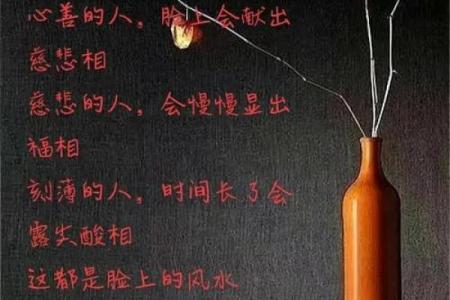 心善的人，脸上会献出
慈悲相
慈悲的人，会慢慢显出
福相
刻薄的人，时间长了会
露尖酸相
这都是脸上的风水